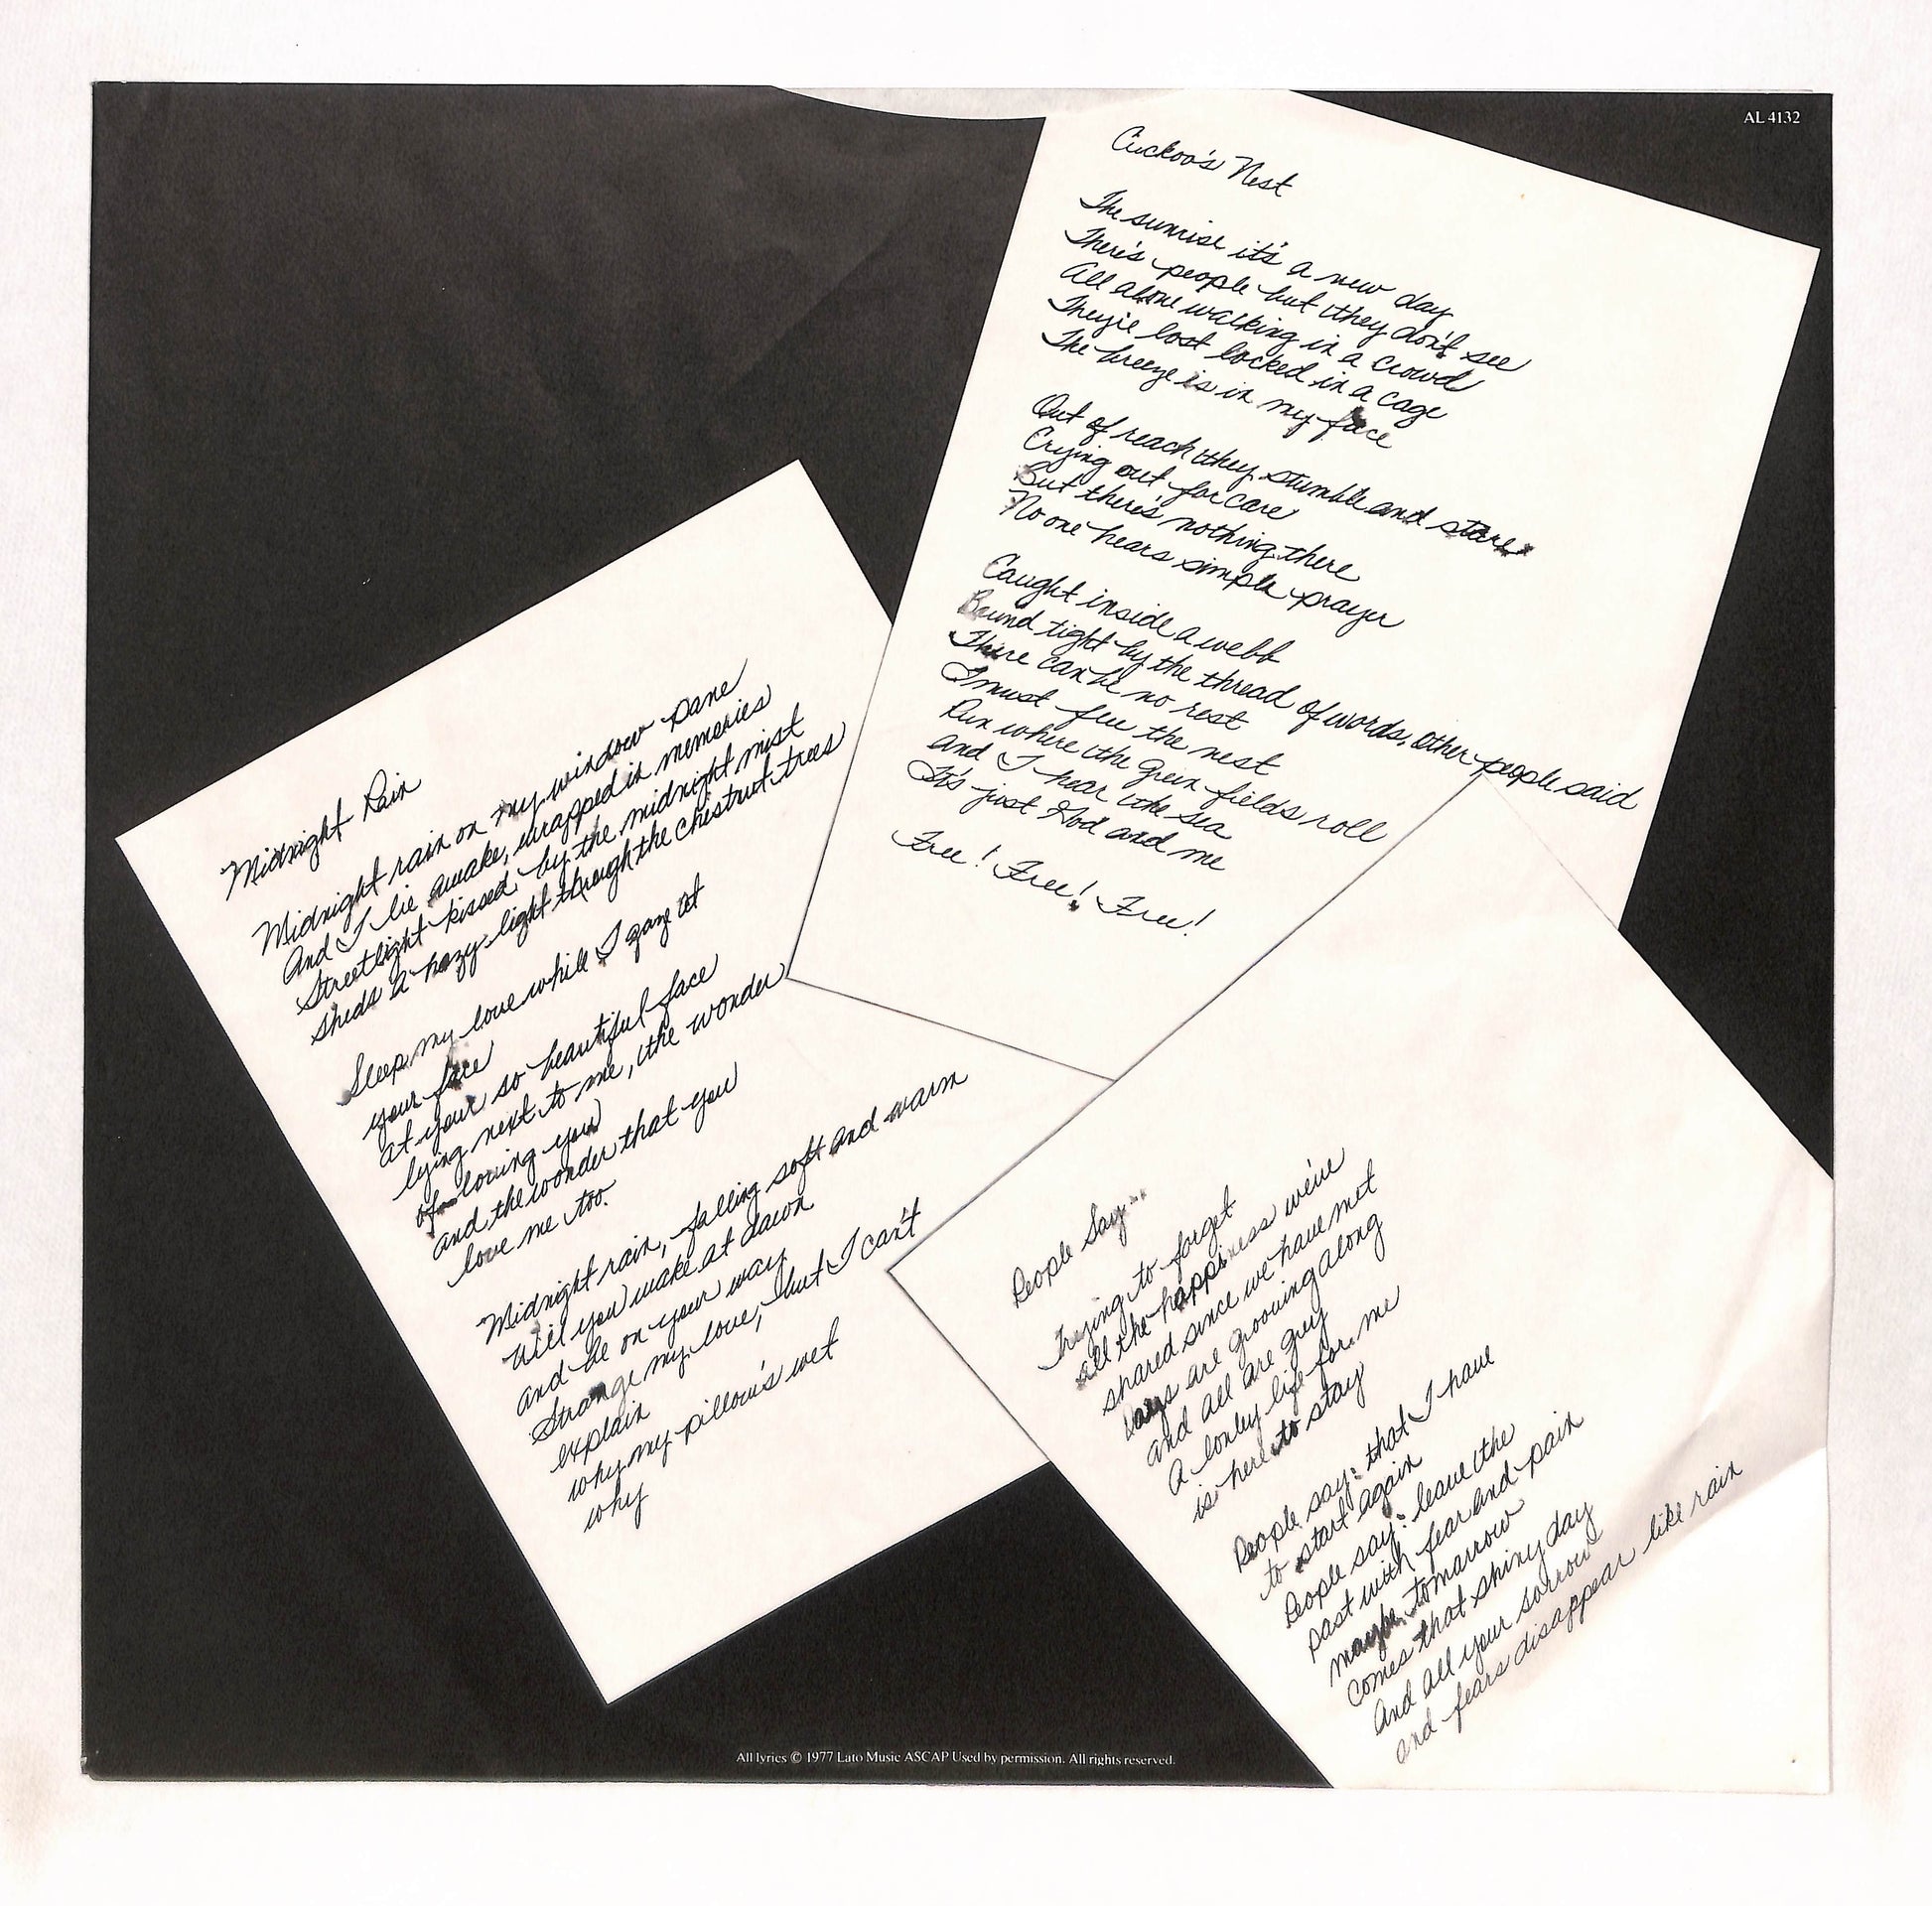 AL 4132
Cuckoo's Nest
The sunrise it's a new day
There's people but they don't see
All alone walking in a crowd
They're lost locked in a cage
The breeze is in my face
Out of reach they stumble and stare
Crying out for care
But there's nothing there
No one hears simple prayer
Caught inside a webb
Bound tight by the thread of words, other people said
There can be no rest
I must flee the nest
Run where the green fields roll
and I hear the sea
It's just God and me
Free! Free! Free!
Midnight Rain
Midnight rain on my window pane
And I lie awake, wrapped in memories
Streetlight kissed by the midnight mist
Sheds a hazy light through the chestnut trees
Sleep my love while I gaze at
your face
at your so beautiful face
lying next to me, the wonder
of loving you
and the wonder that you
love me too.
Midnight rain, falling soft and warm
Will you wake at dawn
and be on your way
Strange my love, but I can't
explain
why my pillow's wet
why
People Say...
Trying to forget
all the happiness we've
shared since we have met
Days are grooving along
and all are grey
A lonley life for me
is here to stay
People say: that I have
to start again
People say: leave the
past with fear and pain
maybe tomarrow
comes that shiny day
And all your sorrow
and fears disappear like rain
All lyrics © 1977 Lato Music ASCAP Used by permission. All rights reserved.